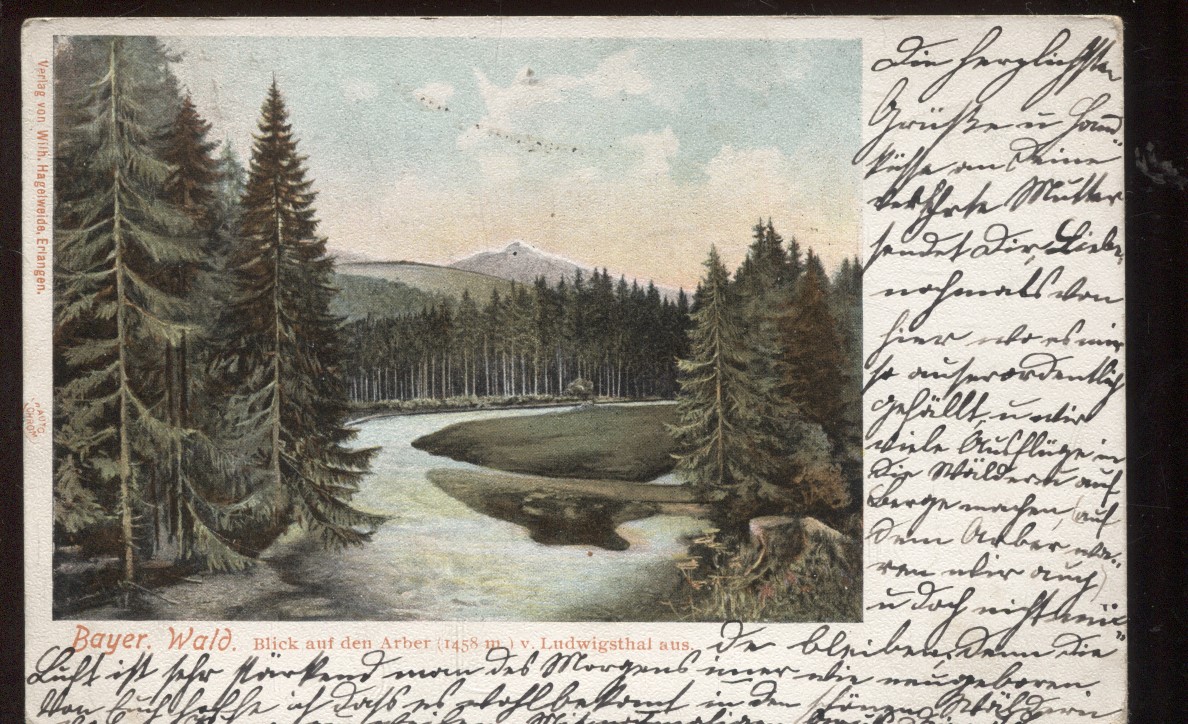 Verlag von Wilh. Hagelweide, Erlangen.
"AUTO
CHROM"
Bayer. Wald. Blick auf den Arber (1458 m.) v. Ludwigsthal aus.
Die herzlichsten
Grüße u Hand
küsse an Deine
verehrte Mutter
sendet Dir, Liebe,
nochmals von
hier wo es mir
so außerordentlich
gefällt, u wir
viele Ausflüge in
die Wälder u auf
Berge machen, (auf
dem Arber wa-
ren wir auch)
u doch nicht mü-
de bleiben, denn die
Luft ist sehr stärkend man des Morgens imer wie neugeboren
Von Euch hoffe ich dass es wohlbekomt in den schönen Wäldern